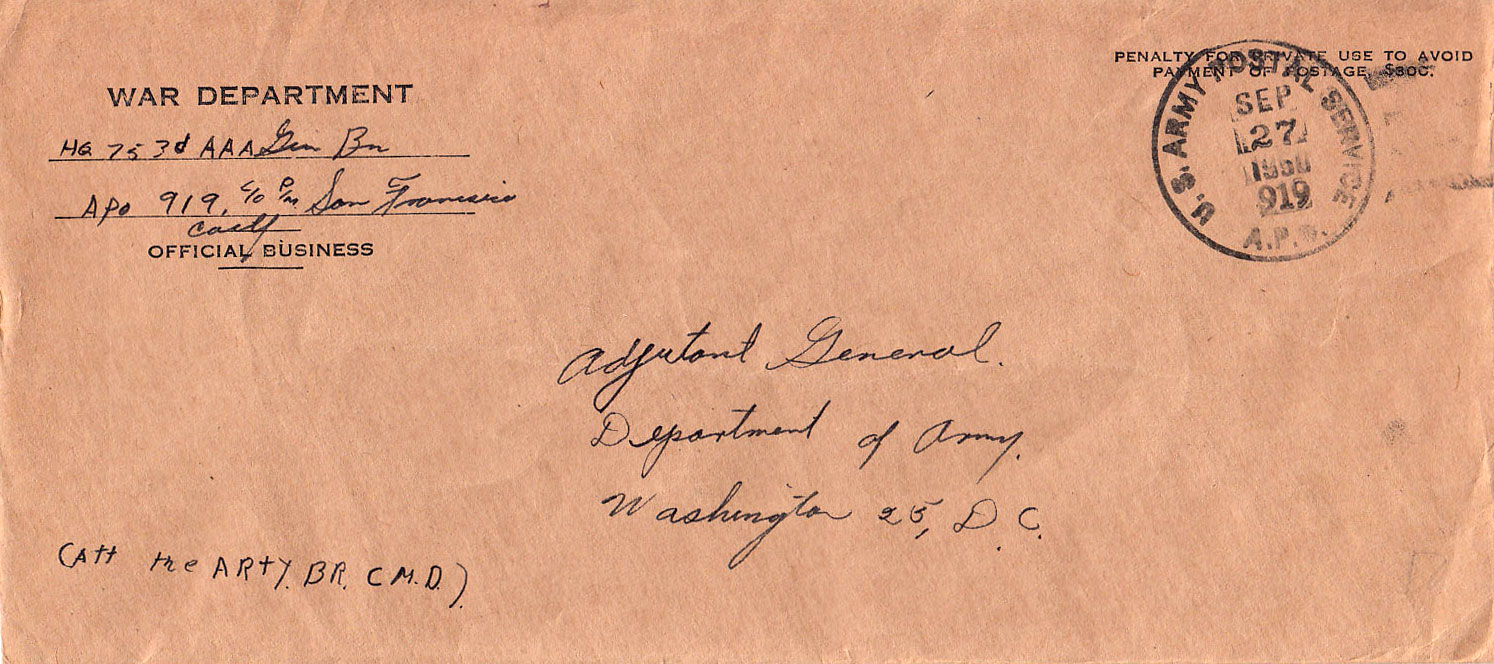 WAR DEPARTMENT
HQ 753d AAA Gun Bn
APO 919, c/o P.M. San Francisco
Calif
OFFICIAL BUSINESS
PENALTY FOR PRIVATE USE TO AVOID
PAYMENT OF POSTAGE, $300.
U.S. ARMY POSTAL SERVICE
SEP
27
1950
919
A.P.O.
Adjutant General.
Department of Army.
Washington 25, D.C.
(Att the ARTY. BR. C.M.D.)